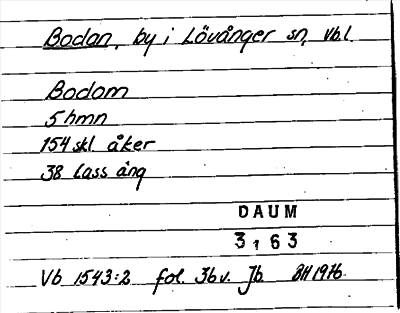 Bodan, by i Lövånger sn, Vbl.
Bodom
5 hmn
154 skl. åker
38 Lass äng
DAUM
3163
Vb 1543:2 fol. 36v. Jb. BH 1976